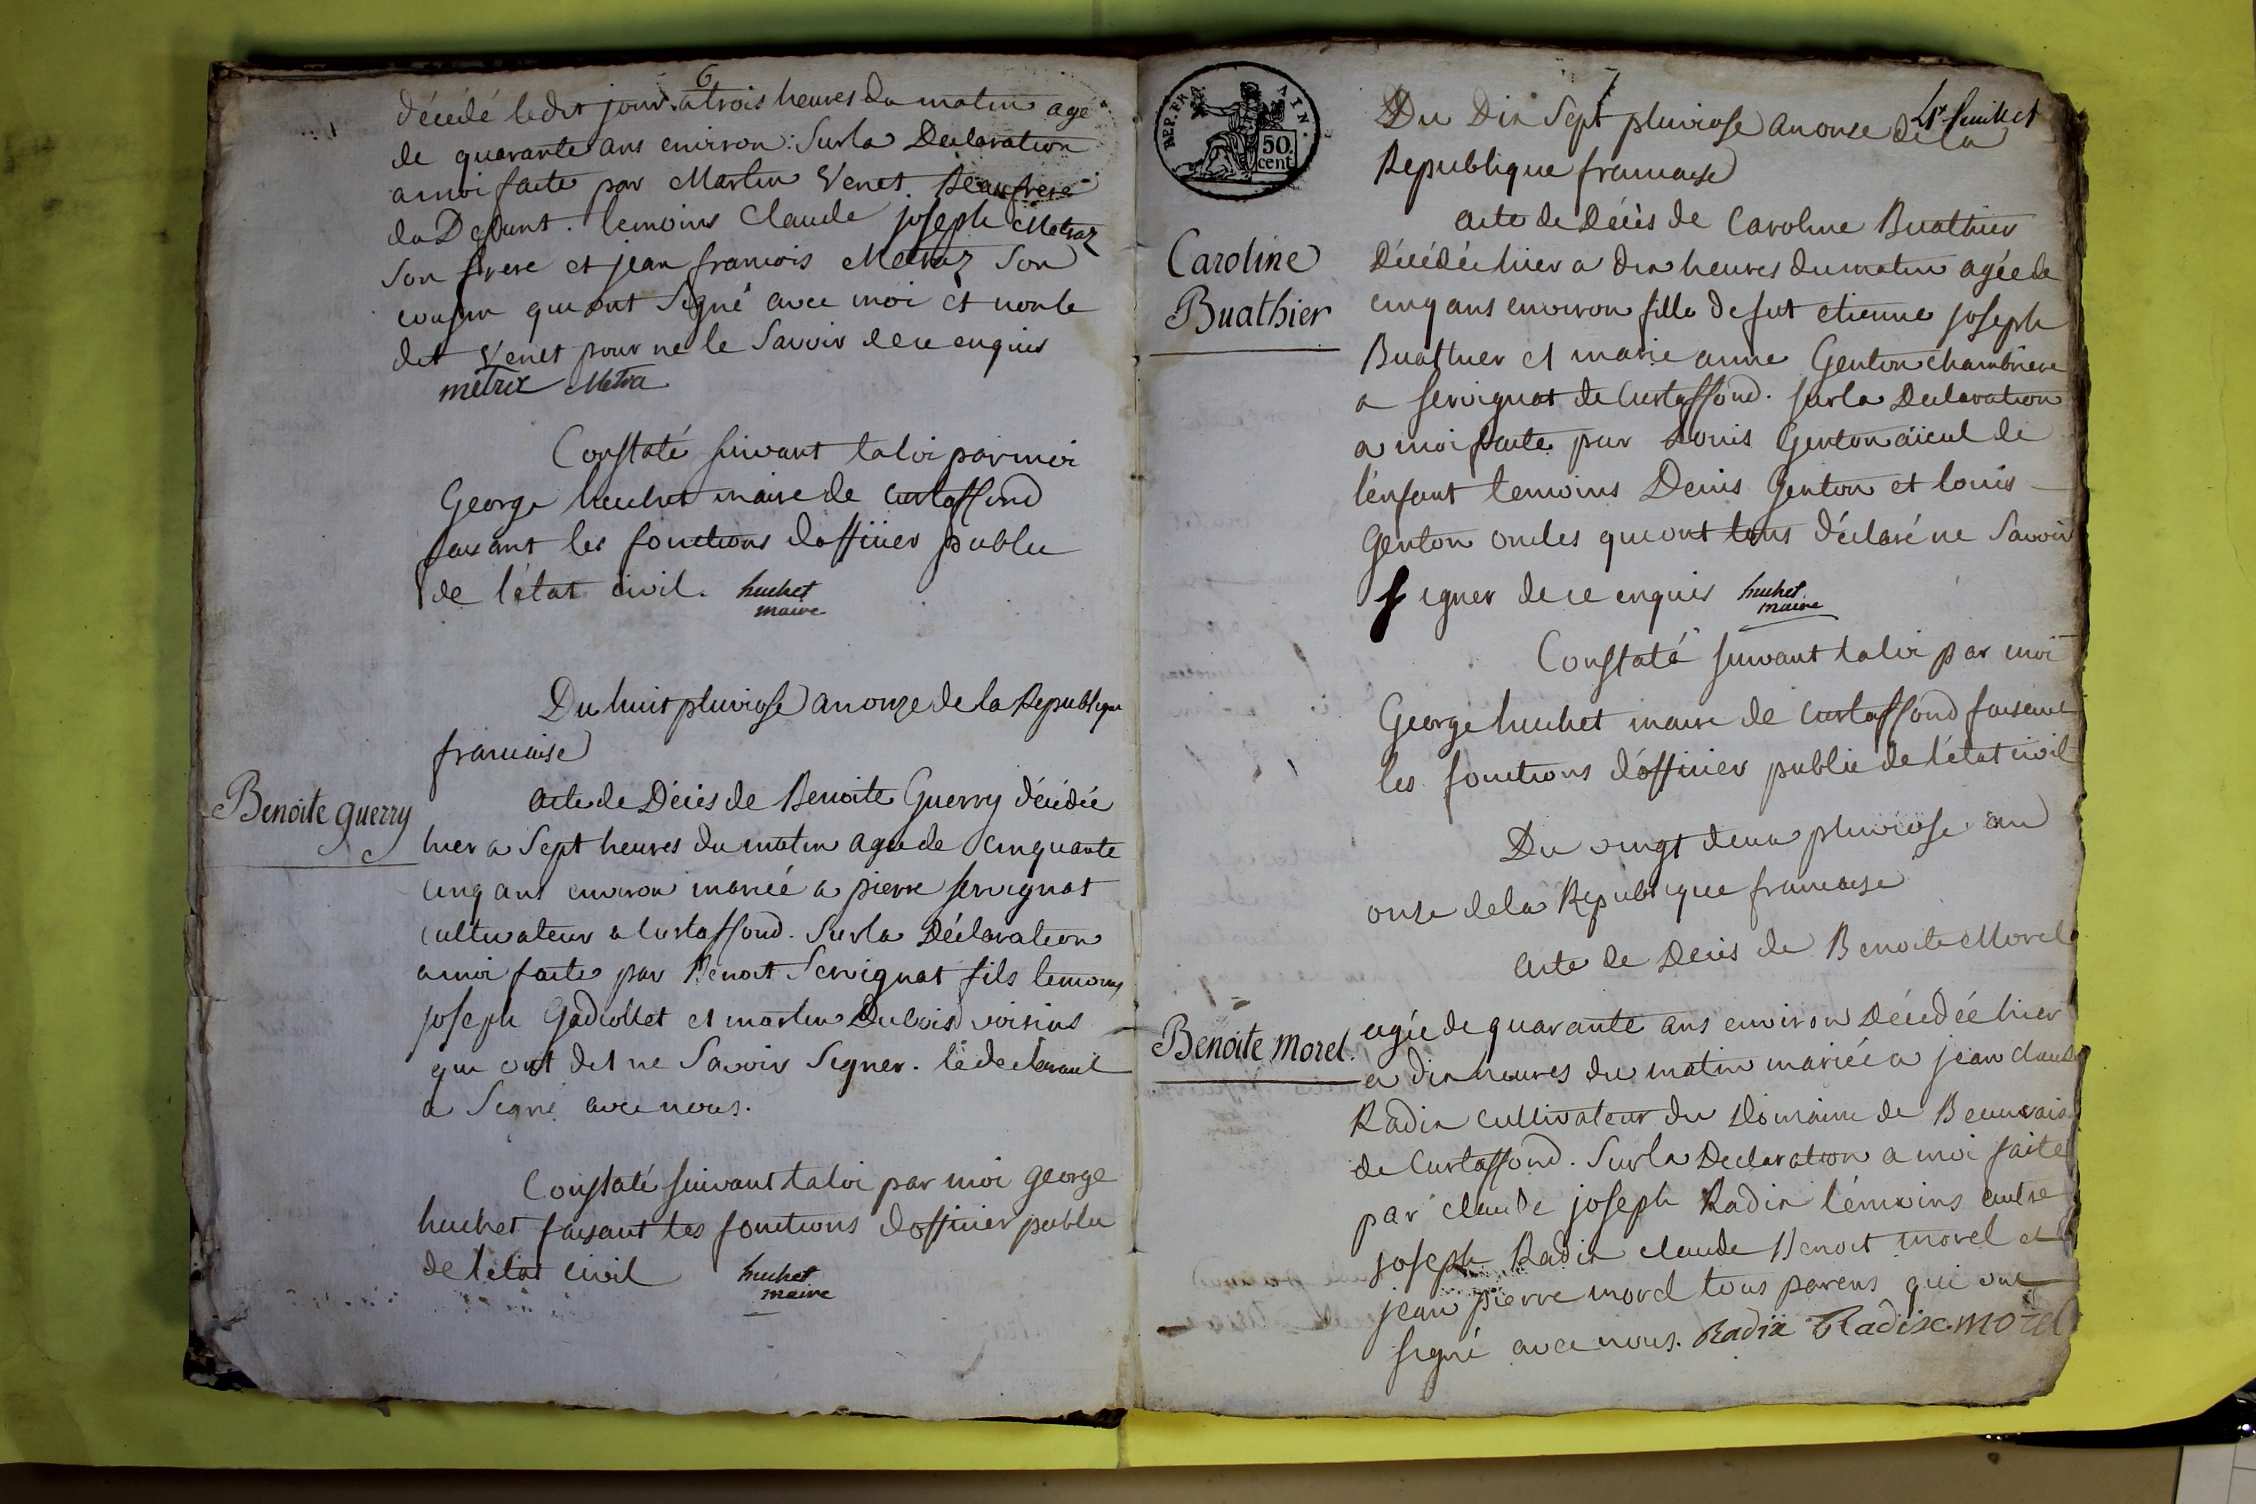 6
décédé ledit jour a trois heures du matin agé
de quarante ans environ. Sur la Declaration
a moi faite par Martin Venet Beaufrere
du Defunt. temoins Claude joseph Metraz
son frere et jean francois Metraz son
cousin qui ont Signé avec moi et non le
dit Venet pour ne le Savoir de ce enquis
metrax Metra
Constaté suivant la loi par moi
George huchet maire de curtaffond
faisant les fonctions d'officier public
de l'état civil. huchet
maire
Du huit pluviose an onze de la Republique
francaise
Benoite guerry
acte de Décès de Benoite Guerry décédée
hier a Sept heures du matin agée de cinquante
cinq ans environ mariée a pierre servignat
cultivateur a Curtaffond. Sur la Déclaration
a moi faite par Benoit Servignat fils temoins
joseph Gadiollet et martin Dubois voisins
qui ont dit ne Savoir Signer. le declarant
a Signé avec nous.
Constaté suivant la loi par moi george
huchet faisant les fonctions d'officier public
de l'état civil huchet
maire
7
4e feuillet
REP. FRA. NAT.
50.
cent.
Du Dix Sept pluviose an onze de la
Republique francaise
Caroline
Buathier
acte de Décès de Caroline Buathier
Décédée hier a dix heures du matin agée de
cinq ans environ fille de fut etienne joseph
Buathier et marie anne Genton chambriere
a servignat de Curtaffond. sur la Declaration
a moi faite par Louis Genton aïeul de
l'enfant temoins Denis Genton et louis
Genton oncles qui ont tous déclaré ne Savoir
signer de ce enquis huchet
maire
Constaté suivant la loi par moi
George huchet maire de Curtaffond faisant
les fonctions d'officier public de l'état civil
Du vingt deux pluviose an
onze de la Republique francaise
acte de Décès de Benoite Morel
Benoite Morel.
agée de quarante ans environ Décédée hier
a dix heures du matin mariée a jean claude
Radix cultivateur du Domaine de Beauvais
de Curtaffond. Sur la Declaration a moi faite
par claude joseph Radix témoins autre
joseph Radix claude Benoit morel et
jean pierre morel tous parens qui ont
signé avec nous. Radix Radix morel